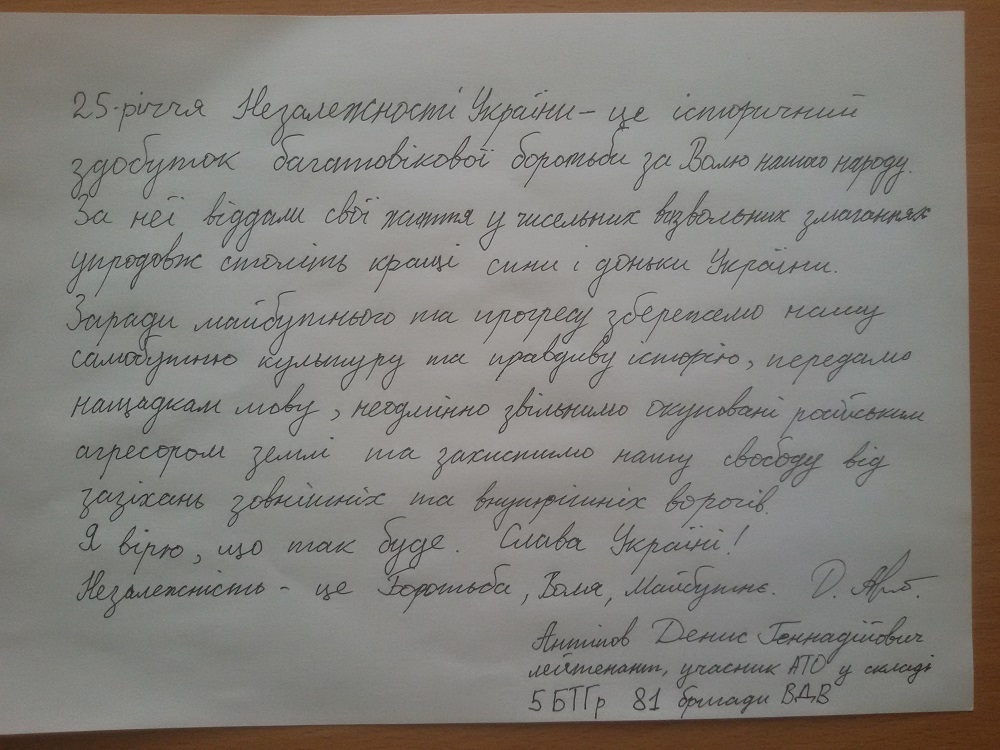 25-річчя Незалежності України – це історичний
здобуток багатовікової боротьби за Волю нашого народу.
За неї віддали свої життя у чисельних визвольних змаганнях
упродовж століть кращі сини і доньки України.
Заради майбутнього та прогресу збережемо нашу
самобутню культуру та правдиву історію, передамо
нащадкам мову, неодмінно звільнимо окуповані російським
агресором землі та захистимо нашу свободу від
зазіхань зовнішніх та внутрішніх ворогів.
Я вірю, що так буде. Слава Україні!
Незалежність – це Боротьба, Воля, Майбутнє. Д.
Антіпов Денис Геннадійович
лейтенант, учасник АТО у складі
5 БТГр 81 бригади ВДВ